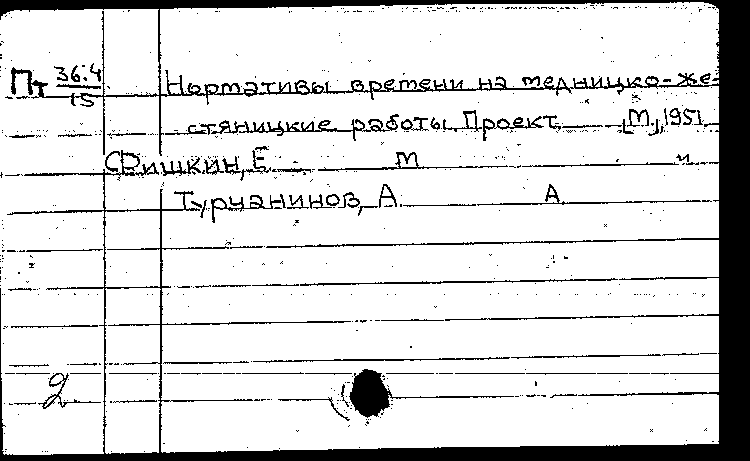 Пт 36.4/15 Нормативы времени на медницко-же-
стяницкие работы. Проект. [М.], 1951
Фишкин, Е. М. и
Турчанинов, А. А.
2.